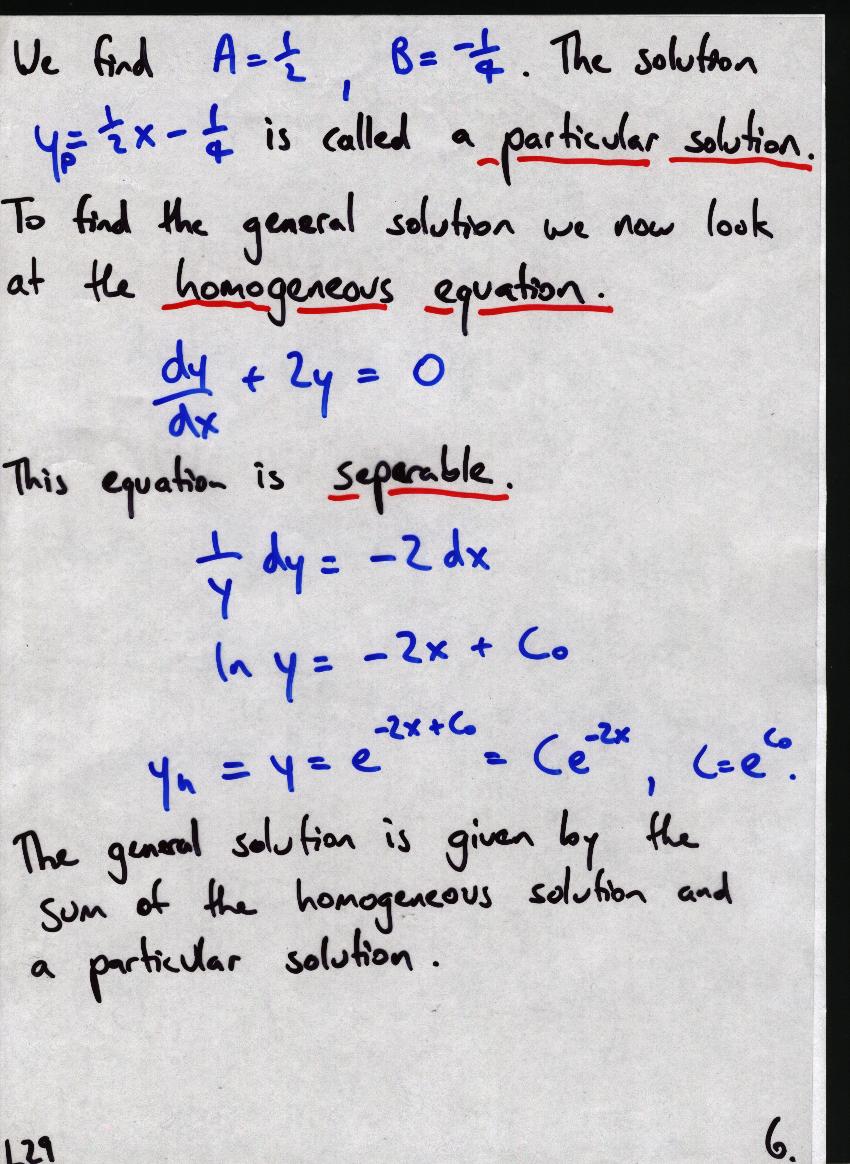 We find A = 1/2, B = -1/4. The solution
y_p = 1/2 x - 1/4 is called a particular solution.
To find the general solution we now look
at the homogeneous equation.
dy/dx + 2y = 0
This equation is separable.
1/y dy = -2 dx
ln y = -2x + C₀
y_h = y = e^(-2x + C₀) = Ce^(-2x), C = e^(C₀).
The general solution is given by the
sum of the homogeneous solution and
a particular solution.
L29 6.